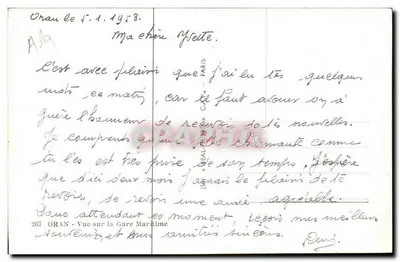 Oran le 5.1.1953.
Ma chère Yvette.
C'est avec plaisir que j'ai lu tes quelques
mots ce matin, car il faut avouer on a
guère l'honneur de recevoir de tes nouvelles.
Je comprends qu'une fille charmante comme
tu l'es est très prise de son temps. J'espère
que d'ici deux mois j'aurai le plaisir de te
revoir, de revoir une amie agréable.
Dans attendant ce moment, reçois mes meilleurs
267 ORAN - Vue sur la Gare Maritime
souvenirs et mes amitiés sincères.